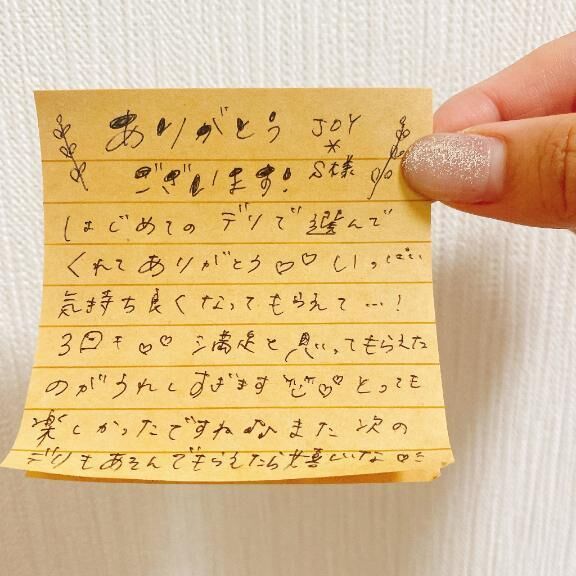 ありがとう JOY
*
ございます! S様
はじめての デリで 選んで
くれてありがとう♡♡ いっぱい
気持ち良くなってもらえて…!
3回も♡♡ 満足と思ってもらえた
のがうれしすぎます ♡♡ とっても
楽しかったですね また 次の
デリもあそんでもらえたら嬉しいな♡